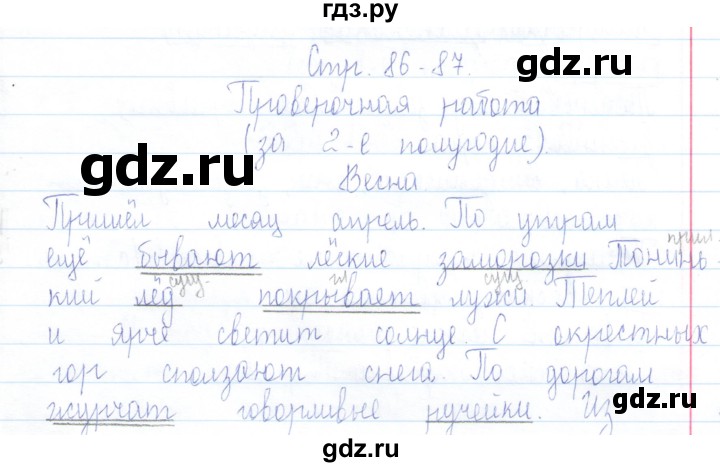 гдз.ру
Стр. 86-87.
gdz.ru
Проверочная работа
gdz.ru
(за 2-е полугодие).
gdz.ru
Весна.
Пришёл месяц апрель. По утрам
прил.
ещё бывают лёгкие заморозки Тонинь-
сущ. гл. сущ
кий лёд покрывает лужи. Теплей
gdz.ru
и ярче светит солнце. С окрестных
гор сползают снега. По дорогам
gdz.ru
журчат говорливые ручейки. Из
gdz.ru
gdz.ru